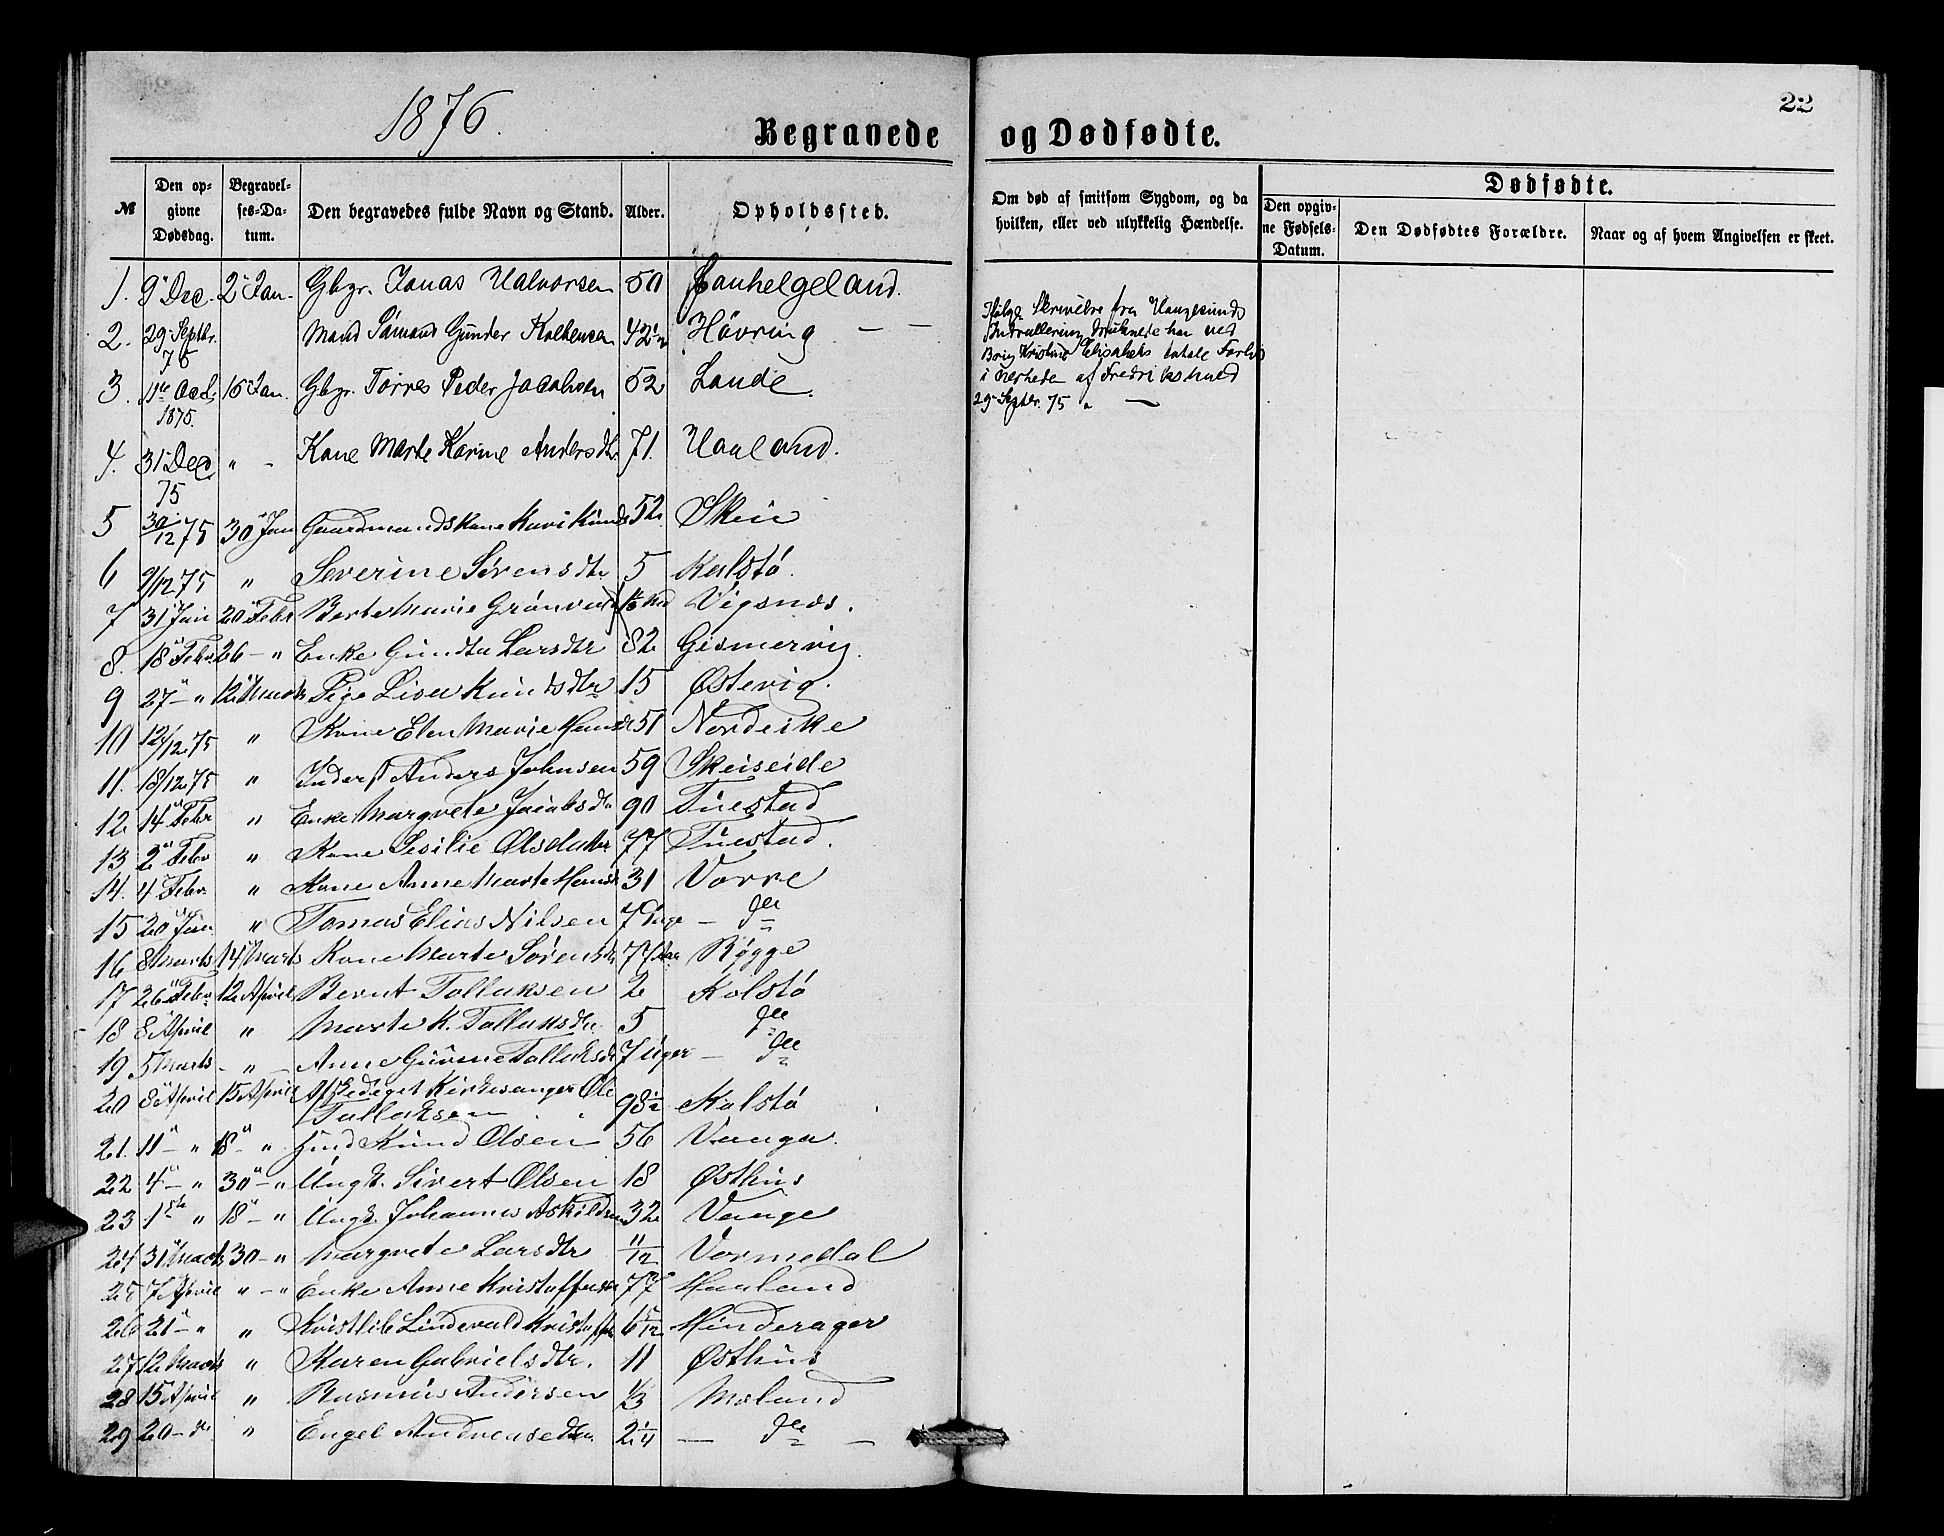 1876.
22
Begravede og Dødfødte.
№ Den opgivne Dødsdag. Begravelses-Datum. Den begravedes fulde Navn og Stand. Alder. Opholdssted. Om død af smitsom Sygdom, og da hvilken, eller ved ulykkelig Hændelse.
Dødfødte.
Den opgivne Fødsels-Datum. Den Dødfødtes Forældre. Naar og af hvem Angivelsen er skeet.
1. 9 Dec. 2 Jan. Gbgr. Jonas Halvorsen 50
2. 29 Septbr. 75 Mand Sømand Gunder 42½ Hövring
3. 11te 1875. 16 Jan. Gbgr. Torres Peder Jacobsen 52 Lande.
4. 31 Dec 75 " Kone Marte Karine Andersdtr. 71. Haaland.
5 30/12 75 30 Jan Gaardmandskone Kari Knuds 52 Skeie
6 9/12 75 " Severine Sörensdtr 5 Kalstö.
7 31 Jan 20 Febr Berte Marie Vigsnæs.
8. 18 Febr 26 – " Enke Gundla Larsdtr 82 Gismervig.
9 27 – " 12 Marts Pige Lisa Knudsdtr 15 Østevig.
10 12/12 75 " Kone Elen Marie Hansd 51 Nordeike
11. 18/12 75 " Inderst Anders Johnsen 59 Skeiseide
12 14 Febr " Enke Margrete Jacobsdtr 90 Tuestad
13 2 Febr " Kone Sesilie Olsdatter 77 Tuestad.
14. 4 Febr " Kone Anne Marte Hansd 31 Vorre
15 20 Jan " Tomas Elias Nilsen 7 Dage – do
16 8 Marts 14 Marts Kone Marte Sörensdtr 77 Aar Bøgge
17 26 Febr 12 April Bernt Tollaksen 2 Kolstö
18 8 April " Marte K. Tollaksdtr. 5 do
19 5 Marts – " – Anne Gurine Tollaksdtr 7 Uger – do
20 8 April 15 April Afskediget Kirkesanger Ole
Tollaksen 98½ Kalstö
21. 11 – " 18 – " Knud Olsen 56 Vaage.
22 4 – " 30 – " Ungk. Sivert Olsen 18 Østhus
23 1ste " 18 – " Ungk. Johannes Askildsen 32 Vaage
24 31 Marts 30 – " Margrete Larsdtr 11/12 Vormedal
25 7 April " – " Enke Anne Kristoffersdtr 77 Haaland
26 21 – " " Lindevald Kristoffer 6 5/12 Hinderager
27 12 Marts " Karen Gabrielsdtr. 11 Østhus
28 15 April " Rasmus Andersen 1/3 Moland
29 20 – do " Engel Andreasedtr. 2¼ – do –
Ifølge Skrivelse fra Haugesunds
Indrullering druknede han ved
Brig Kristine Elisabets totale Forlis
i nærheden af Fredrikshald
29 Septbr. 75